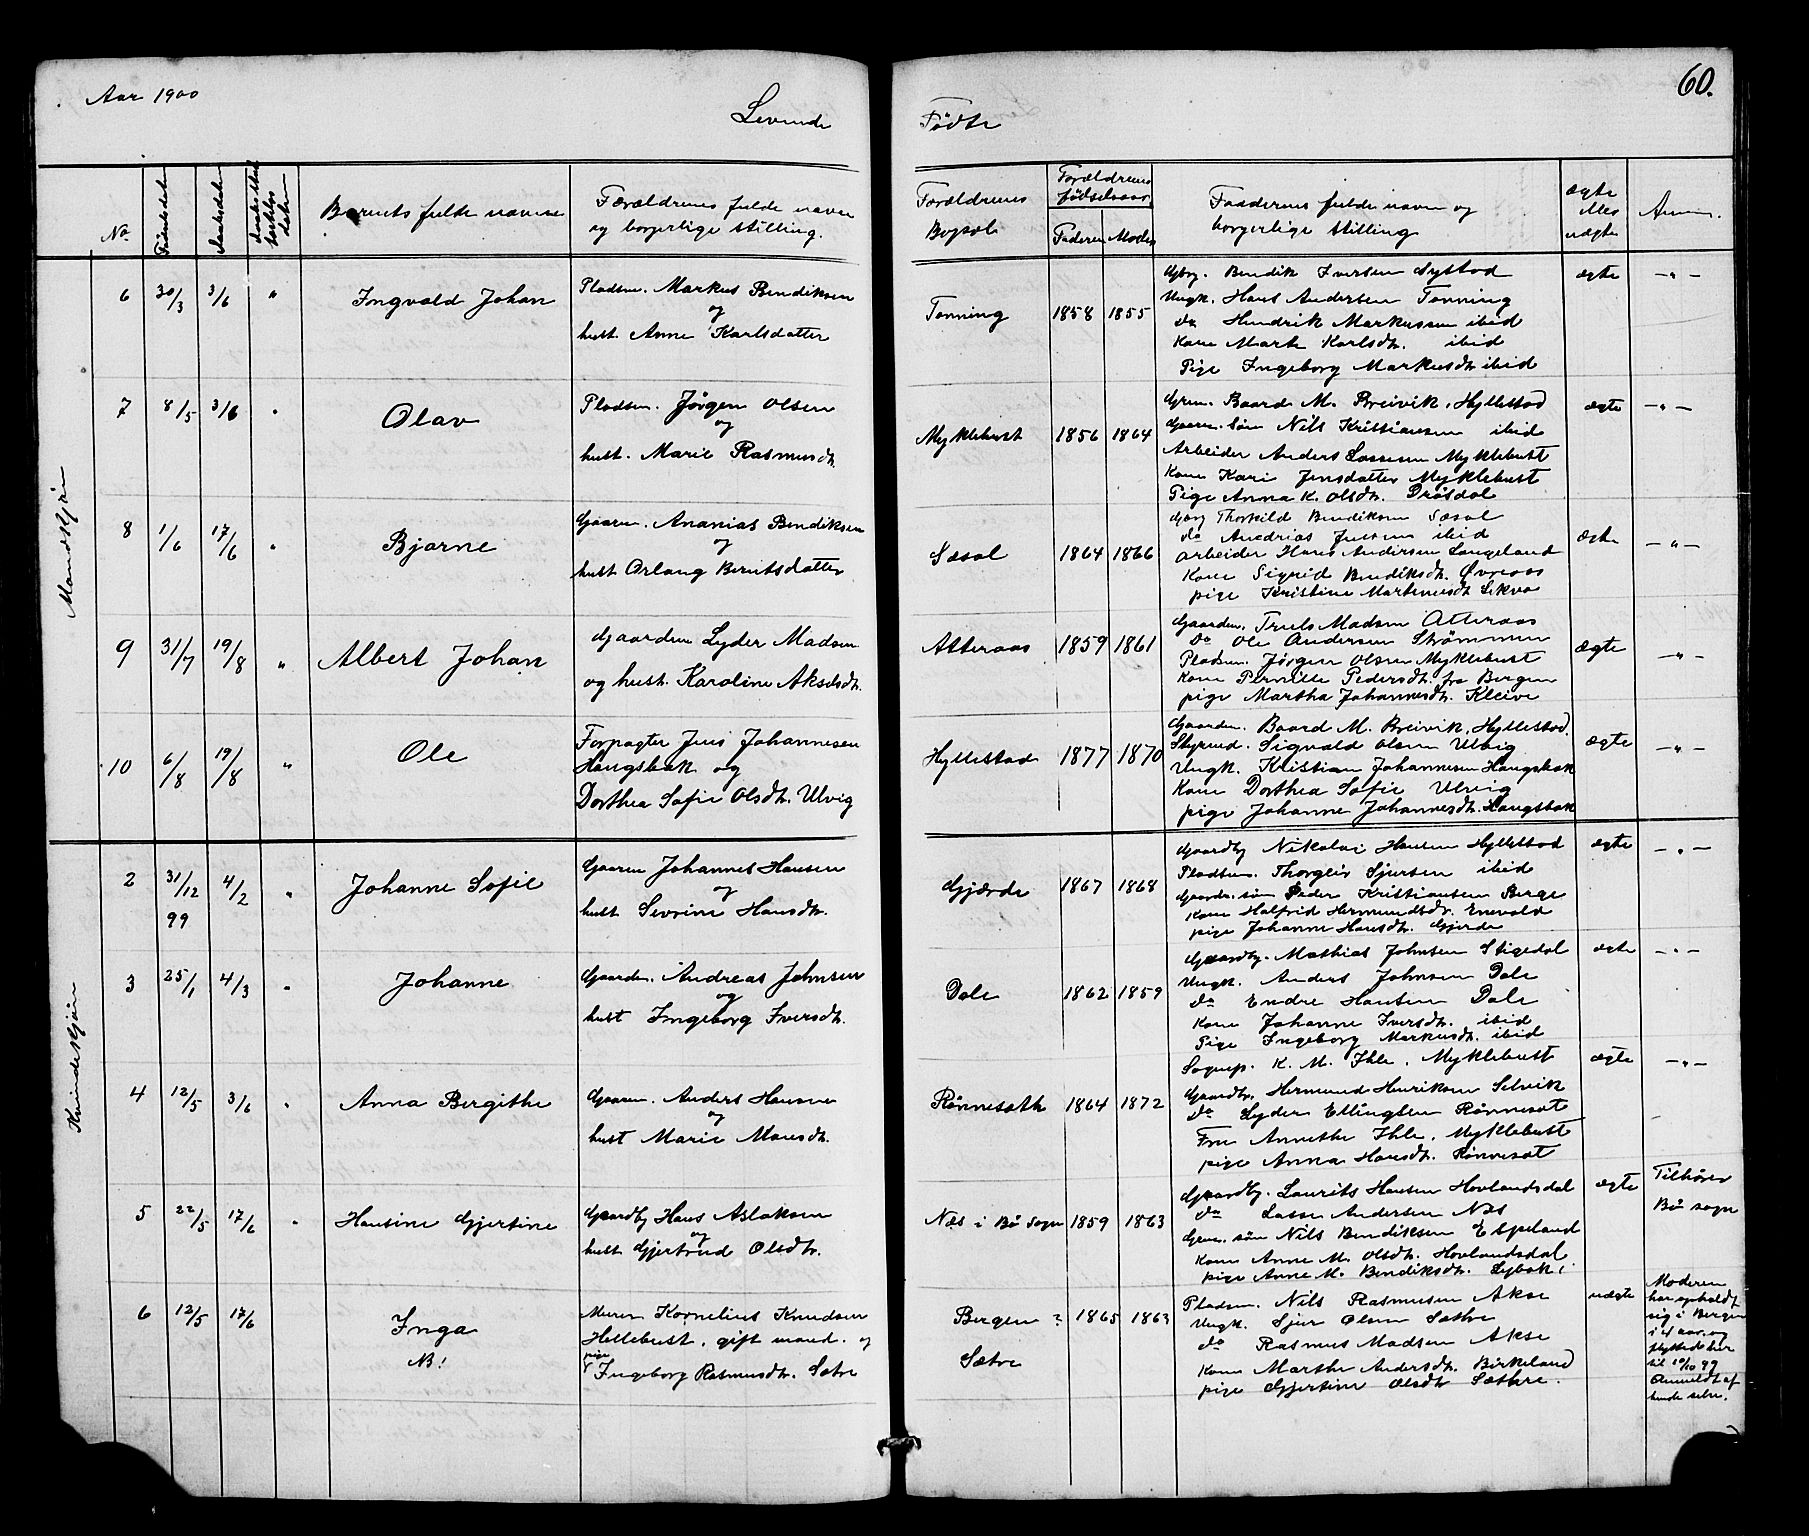 Aar 1900
Levende
Födte
60.
No
Födselsdatum
Daabsdatum
Barnets fulde navne
Forældrenes fulde navn
og borgerlige stilling.
Forældrenes
Bopæl
Forældrenes
födselsaar
Faderen
Moder
Faddernes fulde navn og
borgerlige stilling
ægte
eller
uægte
Anm.
Mandkjön
6 30/3 3/6 " Ingvald Johan
Pladsm. Markus Bendiksen
og
hust. Anne Karlsdatter
Tonning 1858 1855
Gbrg. Bendik Iversen Systad
Ungk. Hans Andersen Tonning
do Hendrik Markussen ibid
Kone Marte Karlsdtr. ibid
Pige Ingeborg Markusdtr ibid
ægte -"-
7 8/5 3/6 " Olav
Pladsm. Jörgen Olsen
og
hust. Marie Rasmusdtr.
Myklebust 1856 1864
Grm. Baard M. Breivik, Hyllestad
Gaarm. sön Nils Kristiansen ibid
Arbeider Anders Lassesen Myklebust
Kone Kari Jensdatter Myklebust
Pige Anna K. Olsdtr. Drösdal
ægte -"-
8 1/6 17/6 " Bjarne
Gaarm. Ananias Bendiksen
og
hust Orlaug Berntsdatter
Sæsol 1864 1866
Gbrg Thorkild Bendiksen Sæsol
do Andrias Jensen ibid
Arbeider Hans Andersen Langeland
Kone Sigrid Bendiksdtr. Øvreaas
pige Kristine Martinusdtr Lekva
ægte -"-
9 31/7 19/8 " Albert Johan
Gaardm Lyder Madsen
og hust. Karoline Akselsdtr.
Atteraas 1859 1861
Gaardm. Truls Madsen Atteraas
do Ole Andersen Strömmen
Pladsm. Jörgen Olsen Myklebust
Kone Pernille Pedersdtr. fra Bergen
pige Martha Johannesdtr. Kleive
ægte -"-
10 6/8 19/8 " Ole
Forpagter Jens Johannesen
Haugsbak og
Dorthea Sofie Olsdtr. Ulvig
Hyllestad 1877 1870
Gaardm. Baard M. Breivik, Hyllestad.
Styrmd. Sigvald Olsen Ulvig
Ungk. Kristian Johannesen Haugsbak
Kone Dorthea Sofie Ulvig
pige Johanne Johannesdtr. Haugsbak
ægte -"-
Kvindekjön
2 31/12 99 4/2 " Johanne Sofie
Gaarm Johannes Hansen
og
hust Sevrine Hansdtr.
Gjærde 1867 1868
Gaardbg Nikolai Hansen Hyllestad
Pladsm. Thorgeir Sjursen ibid
Gaardm. sön Peder Kristiansen Berge
Kone Halfrid Hermundsdtr. Enevald
pige Johanne Hansdtr. Gjerde
ægte -"-
3 25/1 4/3 " Johanne
Gaardm. Andreas Johnsen
og
hust Ingeborg Iversdtr.
Dale 1862 1859
Gaardbg. Mathias Johnsen Stigedal
Ungk. Anders Johnsen Dale
do Endre Hansen Dale
Kone Johanne Iversdtr. ibid
Pige Ingeborg Markusdtr. ibid
ægte -"-
4 12/5 3/6 " Anna Bergithe
Gaarm. Anders Hansen
og
hust Marie Monsdtr.
Rönnesæth 1864 1872
Sognep. K. M. Ihle, Myklebust
Gaardbr. Hermund Henriksen Selvik
do Lyder Ellingsen Rönneset
Fru Annethe Ihle, Myklebust
pige Anna Hansdtr. Rönneset
ægte -"-
5 22/5 17/6 " Hansine Gjertine
Gaardbg Hans Aslaksen
og
hust Gjertrud Olsdtr.
Næs i Bö Sogn 1859 1863
Gaardbg. Laurits Hansen Hovlandsdal
do Lasse Andersen Næs
Grm. sön Nils Bendiksen Espeland
Kone Anne M. Olsdtr. Hovlandsdal
pige Anne M. Bendiksdtr.
ægte
Tilhörer
Bö sogn
6 12/5 17/6 Inga
NB!
Murer Kornelius Knudsen
Hellebust, gift mand. og
pige
Ingeborg Rasmusdtr. Sætre
Bergen ? 1865 1863
Sætre
Pladsm. Nils Rasmusen Akse
Ungk. Sjur Olsen Sæthre
do Rasmus Madsen Akse
Kone Marthe Andersdtr. Birkeland
pige Gjertine Olsdtr Sæthre.
uægte
Moderen
har opholdt
sig i Bergen
i 4 aar, og
flyttede her
til 10/10 99
Anmeldt af
hende selv.